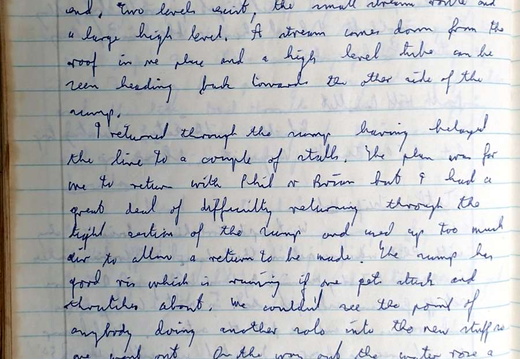 end. Two levels exist, the small stream route and
a large high level. A stream comes down from the
roof in one place and a high level tube can be
seen heading back towards the other side of the
sump.
I returned through the sump having belayed
the line to a couple of stals. The plan was for
me to return with Phil or Brian but I had a
great deal of difficulty returning through the
tight section of the sump and used up too much
air to allow a return to be made. The sump has
good vis which is ruining if one gets stuck and
thrutches about. We couldn't see the point of
anybody doing another solo into the new stuff so
we went out. On the way out the water rose a